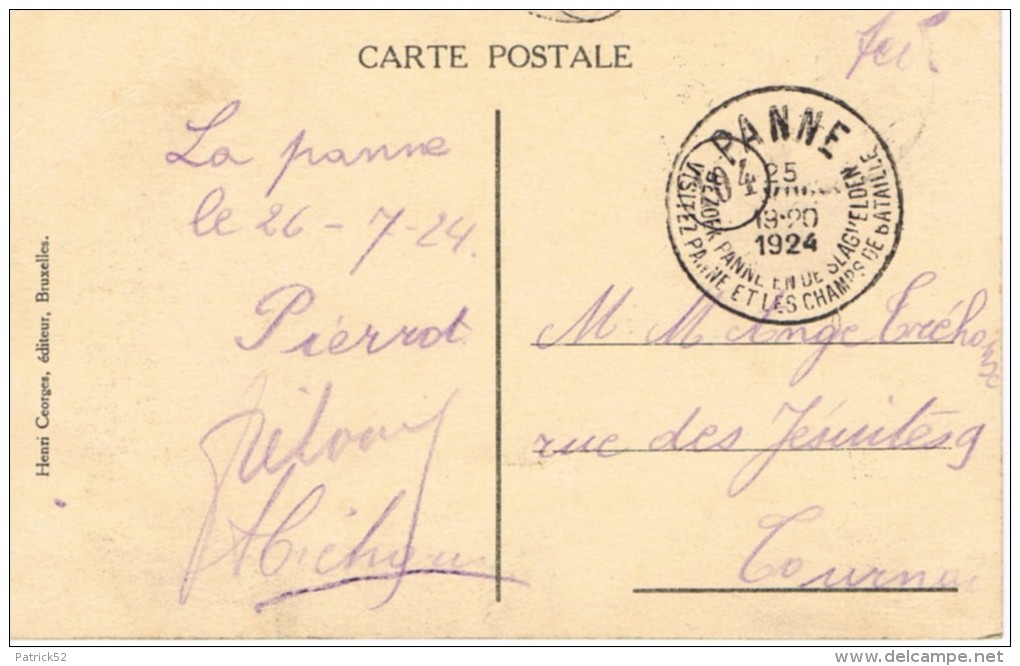 CARTE POSTALE
La panne
le 26-7-24
Pierrot
Henri Georges, éditeur, Bruxelles.
PANNE
25
19-20
1924
BEZOEK PANNE EN DE SLAGVELDEN
VISITEZ PANNE ET LES CHAMPS DE BATAILLE
94
M M Ange
rue des Jésuites 9
Tournai
Patrick52
www.delcampe.net